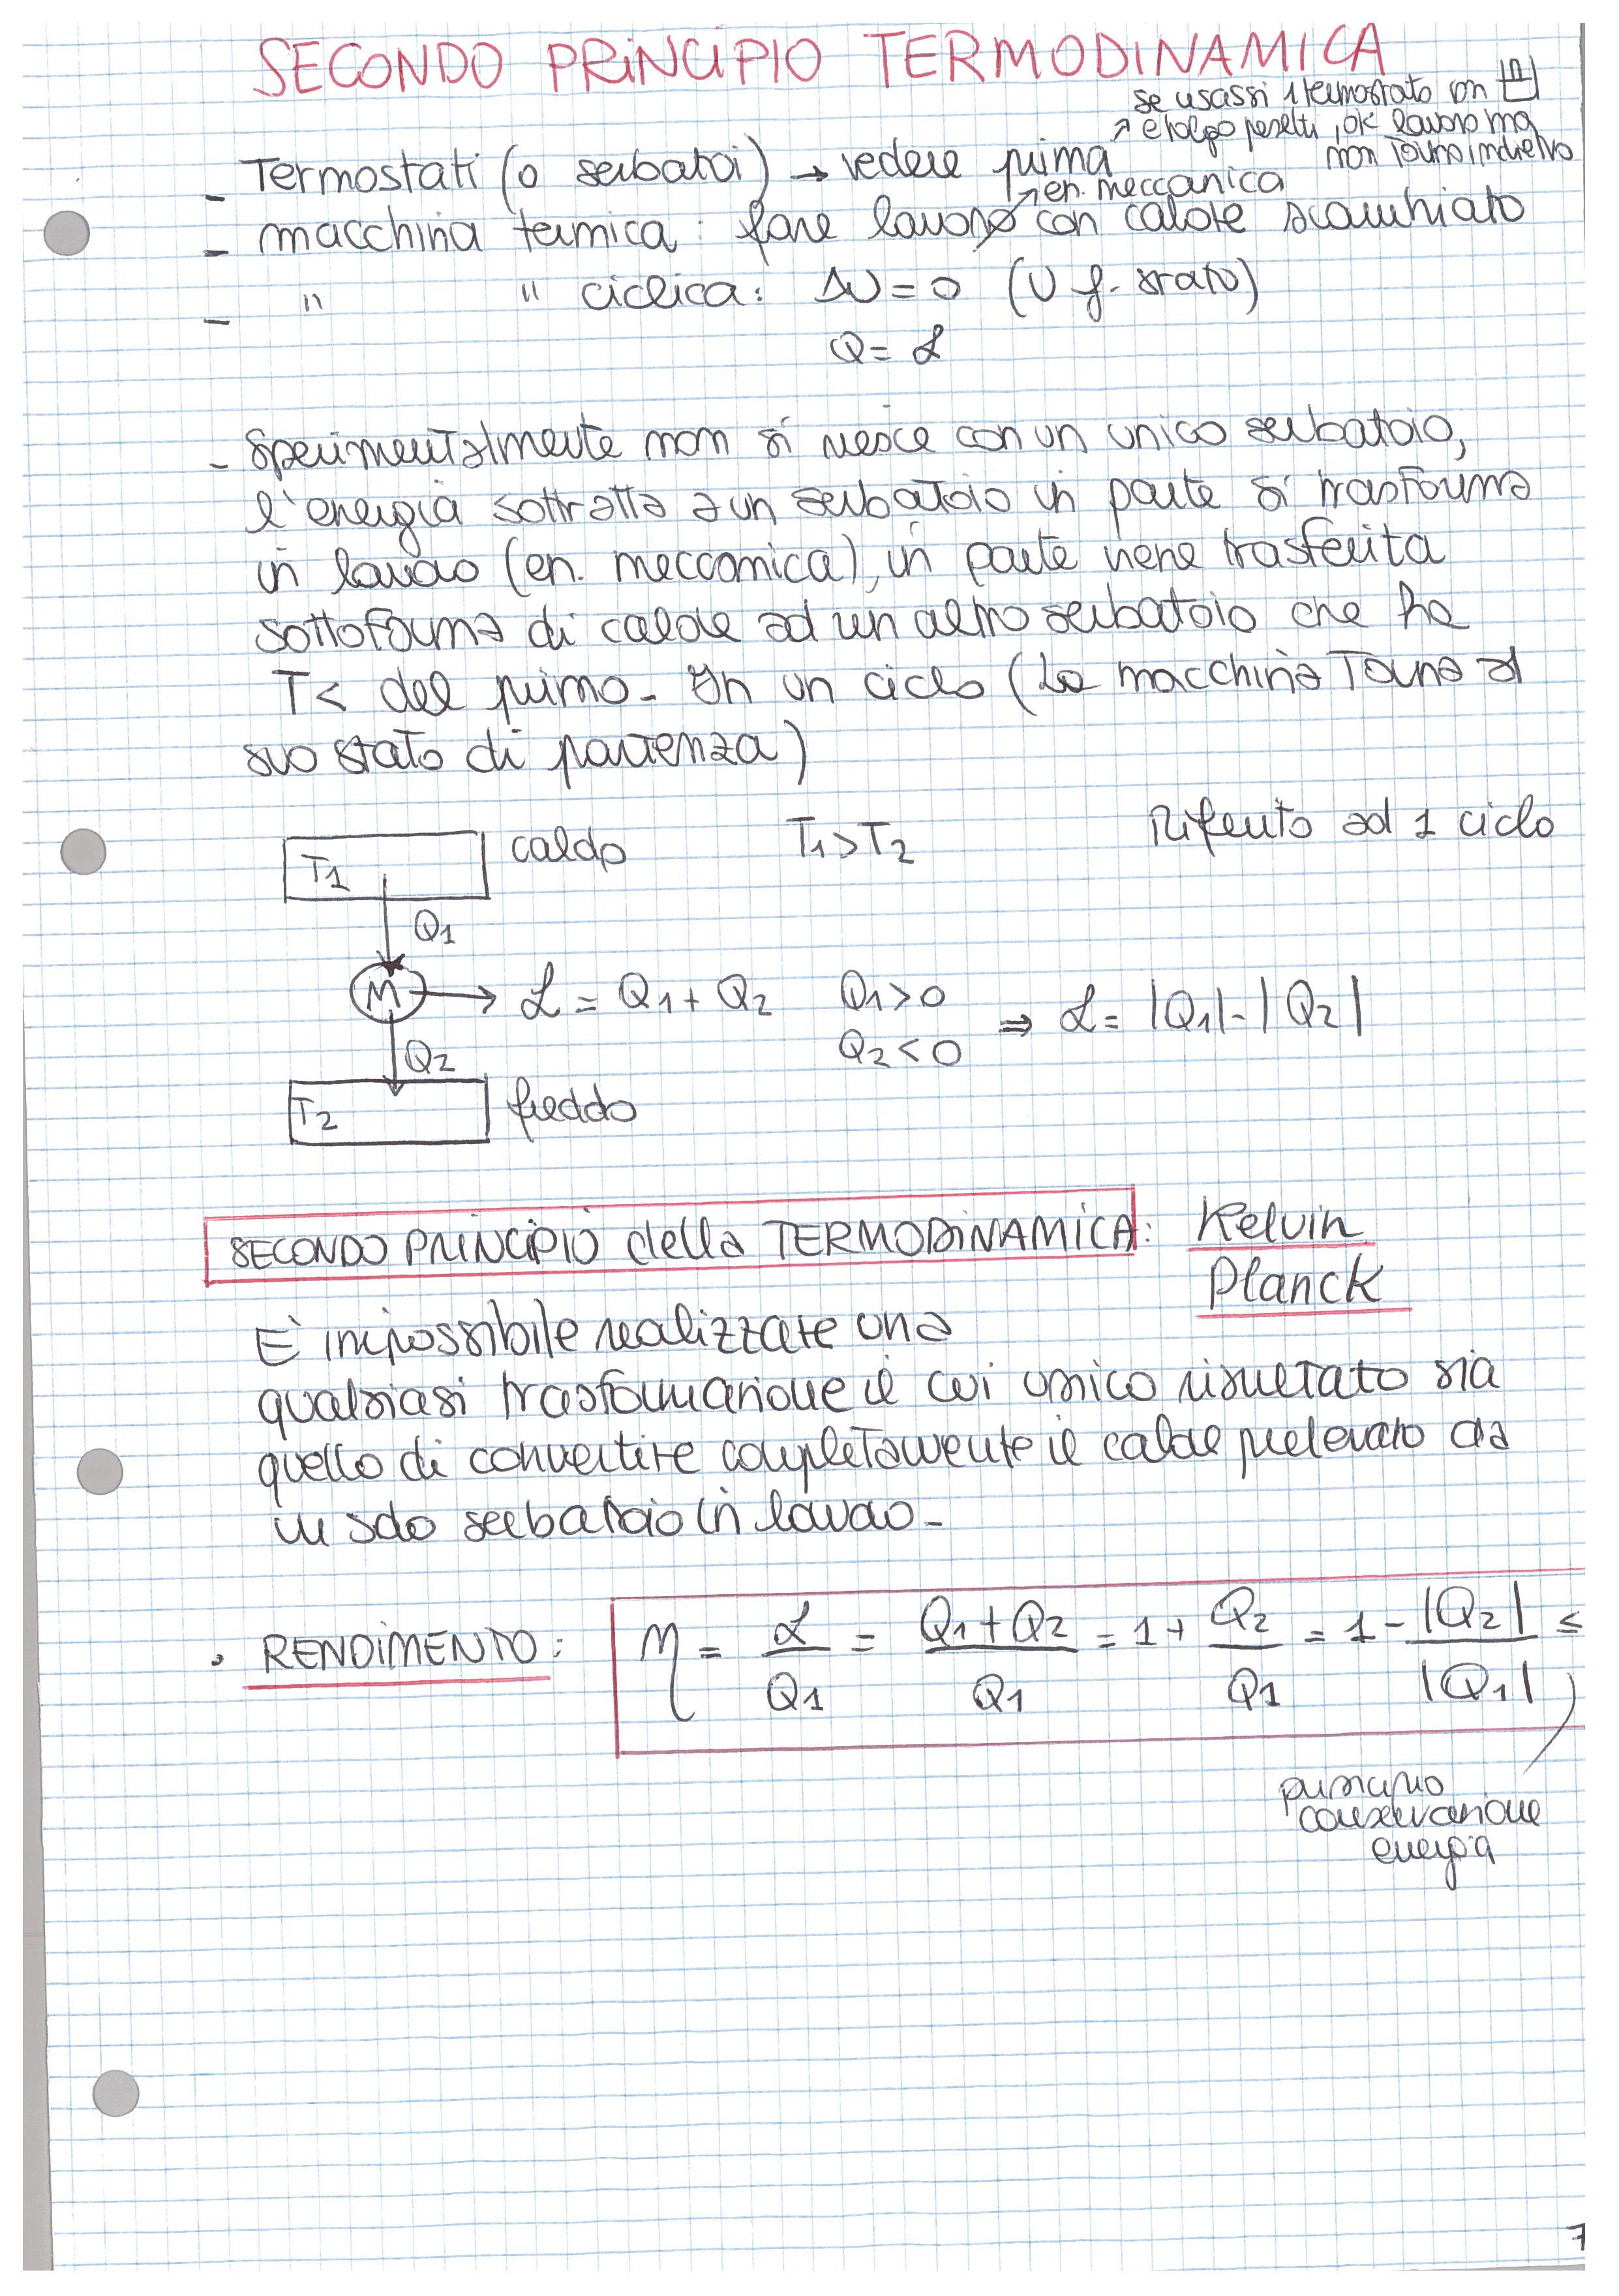 SECONDO PRINCIPIO TERMODINAMICA
se usassi 1 termostato con
e tolgo pesetti, ok lavoro ma
non torno indietro
- Termostati (o serbatoi) → vedere prima
en. meccanica
- macchina termica: fare lavoro con calore scambiato
- " " ciclica: ΔU = 0 (U f. stato)
Q = L
- Sperimentalmente non si riesce con un unico serbatoio,
l'energia sottratta a un serbatoio in parte si trasforma
in lavoro (en. meccanica), in parte viene trasferita
sottoforma di calore ad un altro serbatoio che ha
T< del primo. In un ciclo (la macchina torna al
suo stato di partenza)
T1 caldo T1>T2 Riferito ad 1 ciclo
Q1
M → L = Q1 + Q2 Q1>0 ⇒ L = |Q1| - |Q2|
Q2<0
Q2
T2 freddo
SECONDO PRINCIPIO della TERMODINAMICA: Kelvin
Planck
E' impossibile realizzare una
qualsiasi trasformazione il cui unico risultato sia
quello di convertire completamente il calore prelevato da
un solo serbatoio in lavoro.
• RENDIMENTO: η = L/Q1 = (Q1+Q2)/Q1 = 1 + Q2/Q1 = 1 - |Q2|/|Q1| ≤
principio
conservazione
energia
7